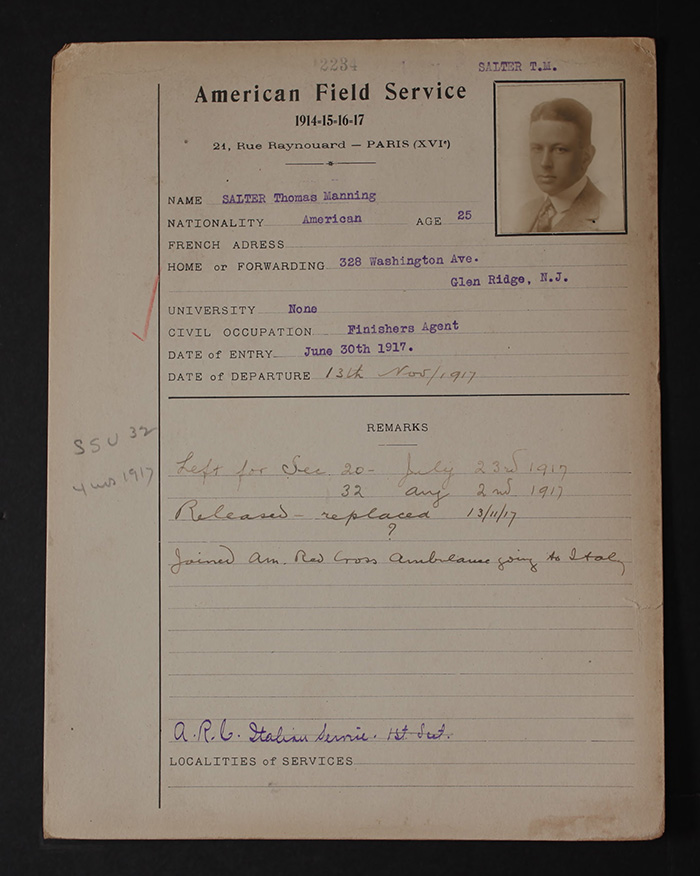 2234
SALTER T.M.
American Field Service
1914-15-16-17
21, Rue Raynouard — PARIS (XVIe)
NAME SALTER Thomas Manning
NATIONALITY American AGE 25
FRENCH ADRESS
HOME or FORWARDING 328 Washington Ave.
Glen Ridge, N.J.
UNIVERSITY None
CIVIL OCCUPATION Finishers Agent
DATE of ENTRY June 30th 1917.
DATE of DEPARTURE 13th Nov/1917
REMARKS
SSU 32
4 mos 1917
Left for Sec. 20 - July 23rd 1917
32 Aug 2nd 1917
Released - replaced 13/11/17
?
Joined Am. Red Cross Ambulance going to Italy
A.R.C. Italian Service. 1st Sect.
LOCALITIES of SERVICES